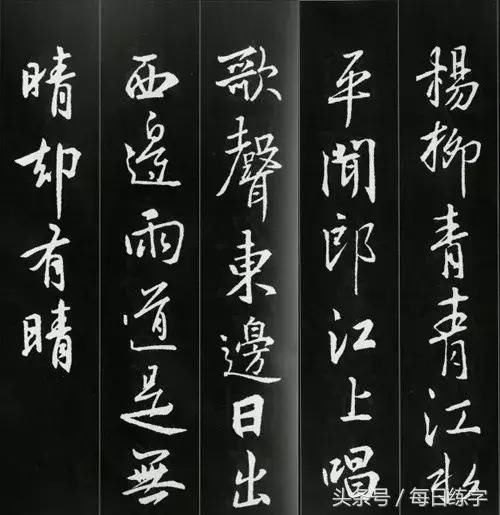 楊柳青青江水
平聞郎江上唱
歌聲東邊日出
西邊雨道是無
晴却有晴
头条号 / 每日练字